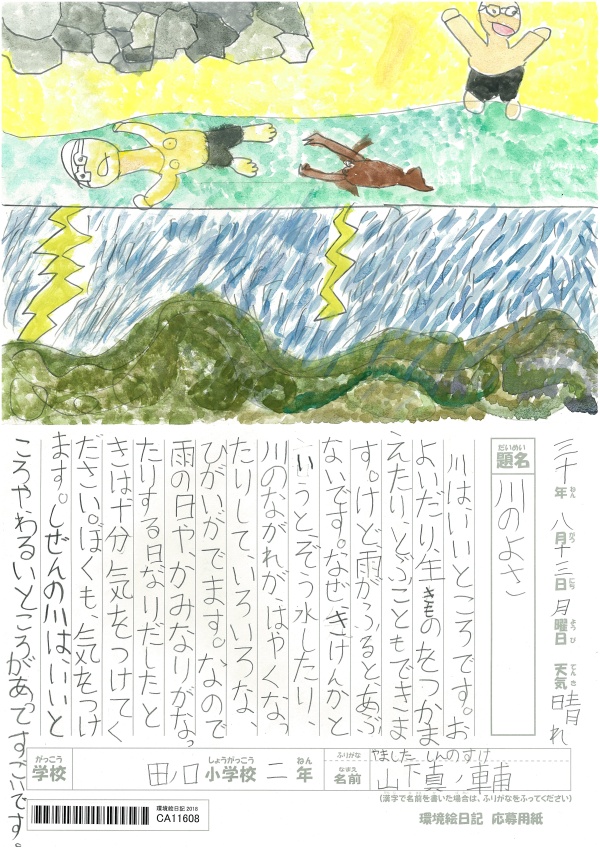 三十年八月十三日月曜日 天気晴れ
ねん がつ にち ようび てんき
だいめい
題名 川のよさ
川は、いいところです。お
よいだり、生きものをつかま
えたり、とぶこともできま
す。けど、雨がふると、あぶ
ないです。なぜ、きけんかと
いうと、ぞう水したり、
川のながれが、はやくなっ
たりして、いろいろな、
ひがいがでます。なので
雨の日や、かみなりがなっ
たりする日なりだしたと
きは十分、気をつけてく
ださい。ぼくも、気をつけ
ます。しぜんの川は、いいと
ころやわるいところがあってすごいです。
がっこう しょうがっこう ねん
学校 田ノ口小学校 二年
ふりがな やました しんのすけ
なまえ
名前 山下真ノ輔
(漢字で名前を書いた場合は、ふりがなをふってください)
環境絵日記 2018
CA11608
環境絵日記 応募用紙